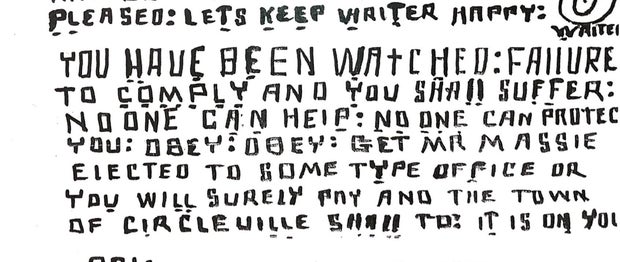 PLEASED: LETS KEEP WRITER HAPPY:
WRITER
YOU HAVE BEEN WATCHED: FAIIURE
TO COMPLY AND YOU SHAII SUFFER:
NO ONE CAN HEIP: NO ONE CAN PROTEC
YOU: OBEY: OBEY: GET MR MASSIE
EIECTED TO SOME TYPE OFFICE OR
YOU WILL SURELY PAY AND THE TOWN
OF CIRCLEVILLE SHAII TO: IT IS ON YOU